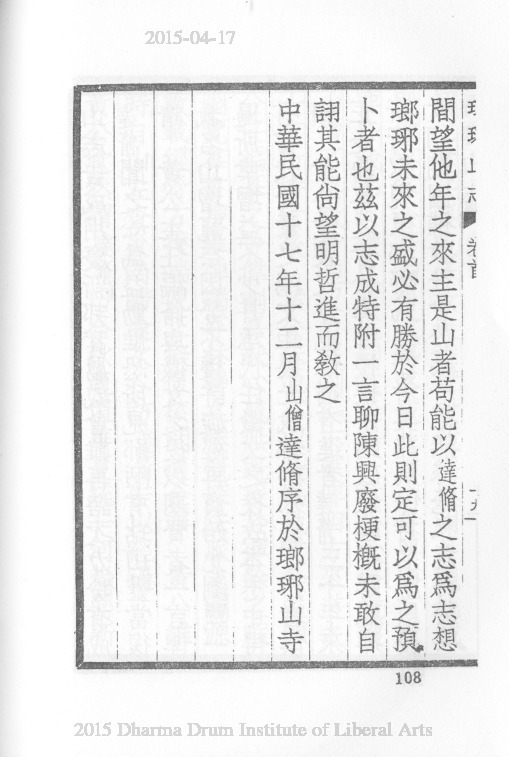 2015-04-17
琅琊山志 卷首
間望他年之來主是山者苟能以達脩之志爲志想
瑯琊未來之盛必有勝於今日此則定可以爲之預
卜者也茲以志成特附一言聊陳興廢梗槪未敢自
詡其能尙望明哲進而敎之
中華民國十七年十二月山僧達脩序於瑯琊山寺
108
2015 Dharma Drum Institute of Liberal Arts